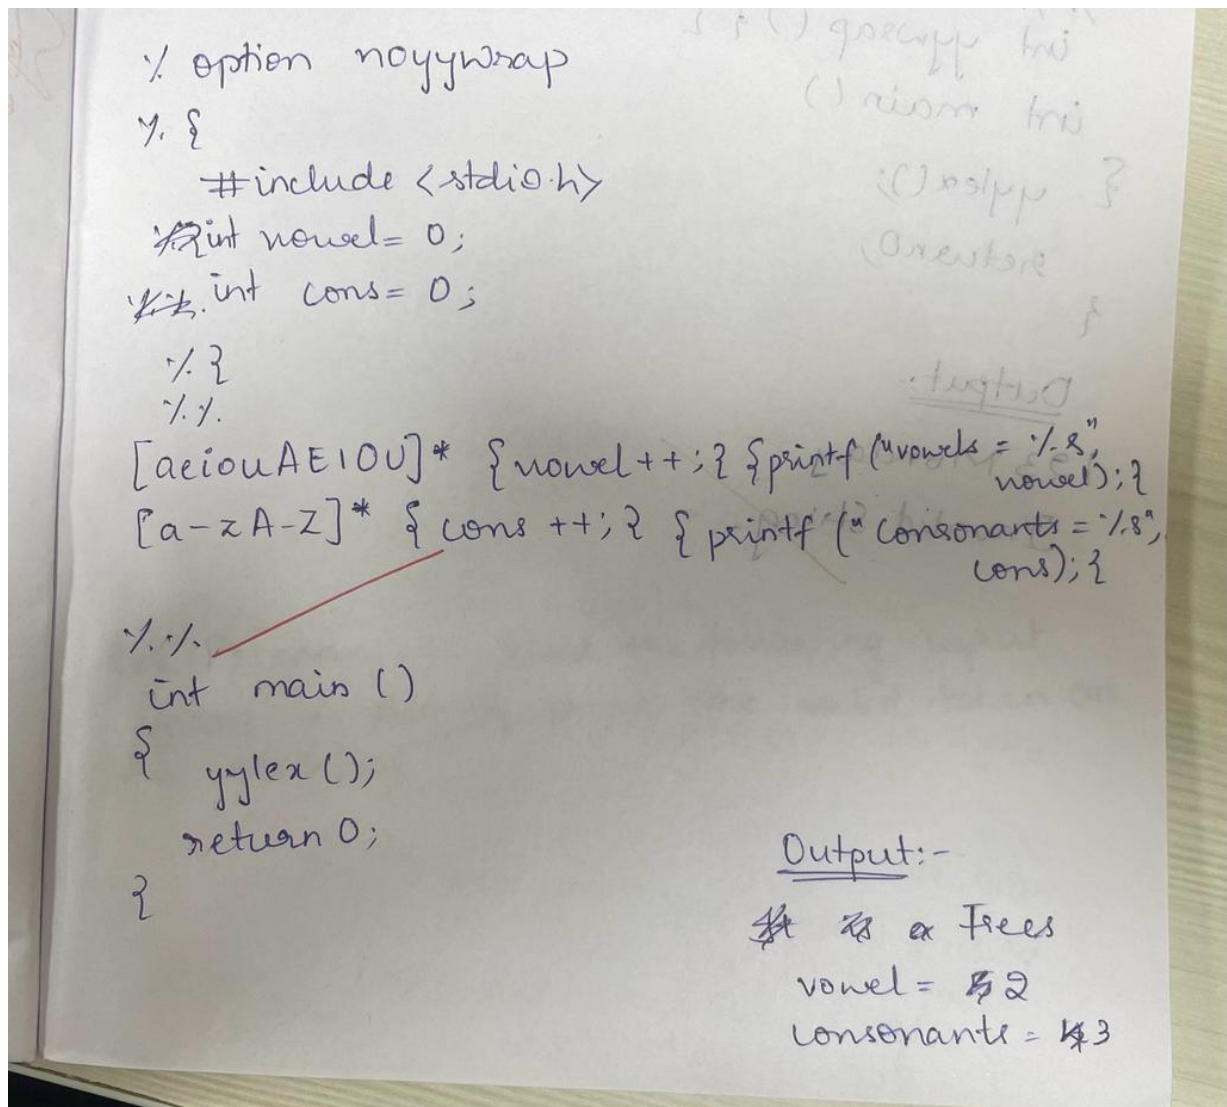 % option noyywrap
% {
#include <stdio.h>
int vowel = 0;
int cons = 0;
% }
%%
[aeiouAEIOU]* {vowel++;} {printf ("vowels = %s",
vowel);}
[a-zA-Z]* {cons ++;} {printf (" consonants = %s",
cons);}
%%
int main ()
{
yylex ();
return 0;
}
Output:-
Trees
vowel = 2
consonants = 3
int yywrap () { }
int main ()
{
yylex ();
return 0;
}
Output: